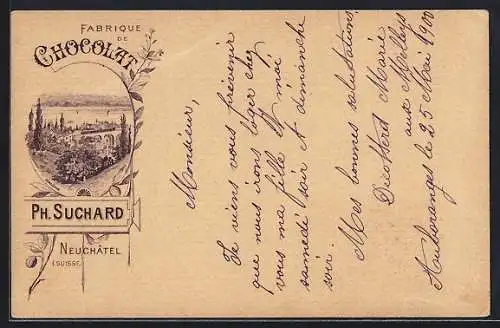 FABRIQUE
DE
CHOCOLAT
PH. SUCHARD
NEUCHÂTEL
(SUISSE)
Monsieur,
Je viens vous prévenir
que nous irons loger chez
vous ma fille et moi
samedi soir et dimanche
soir.
Mes bonnes salutations
Marie
aux
le 25 Mai 1900